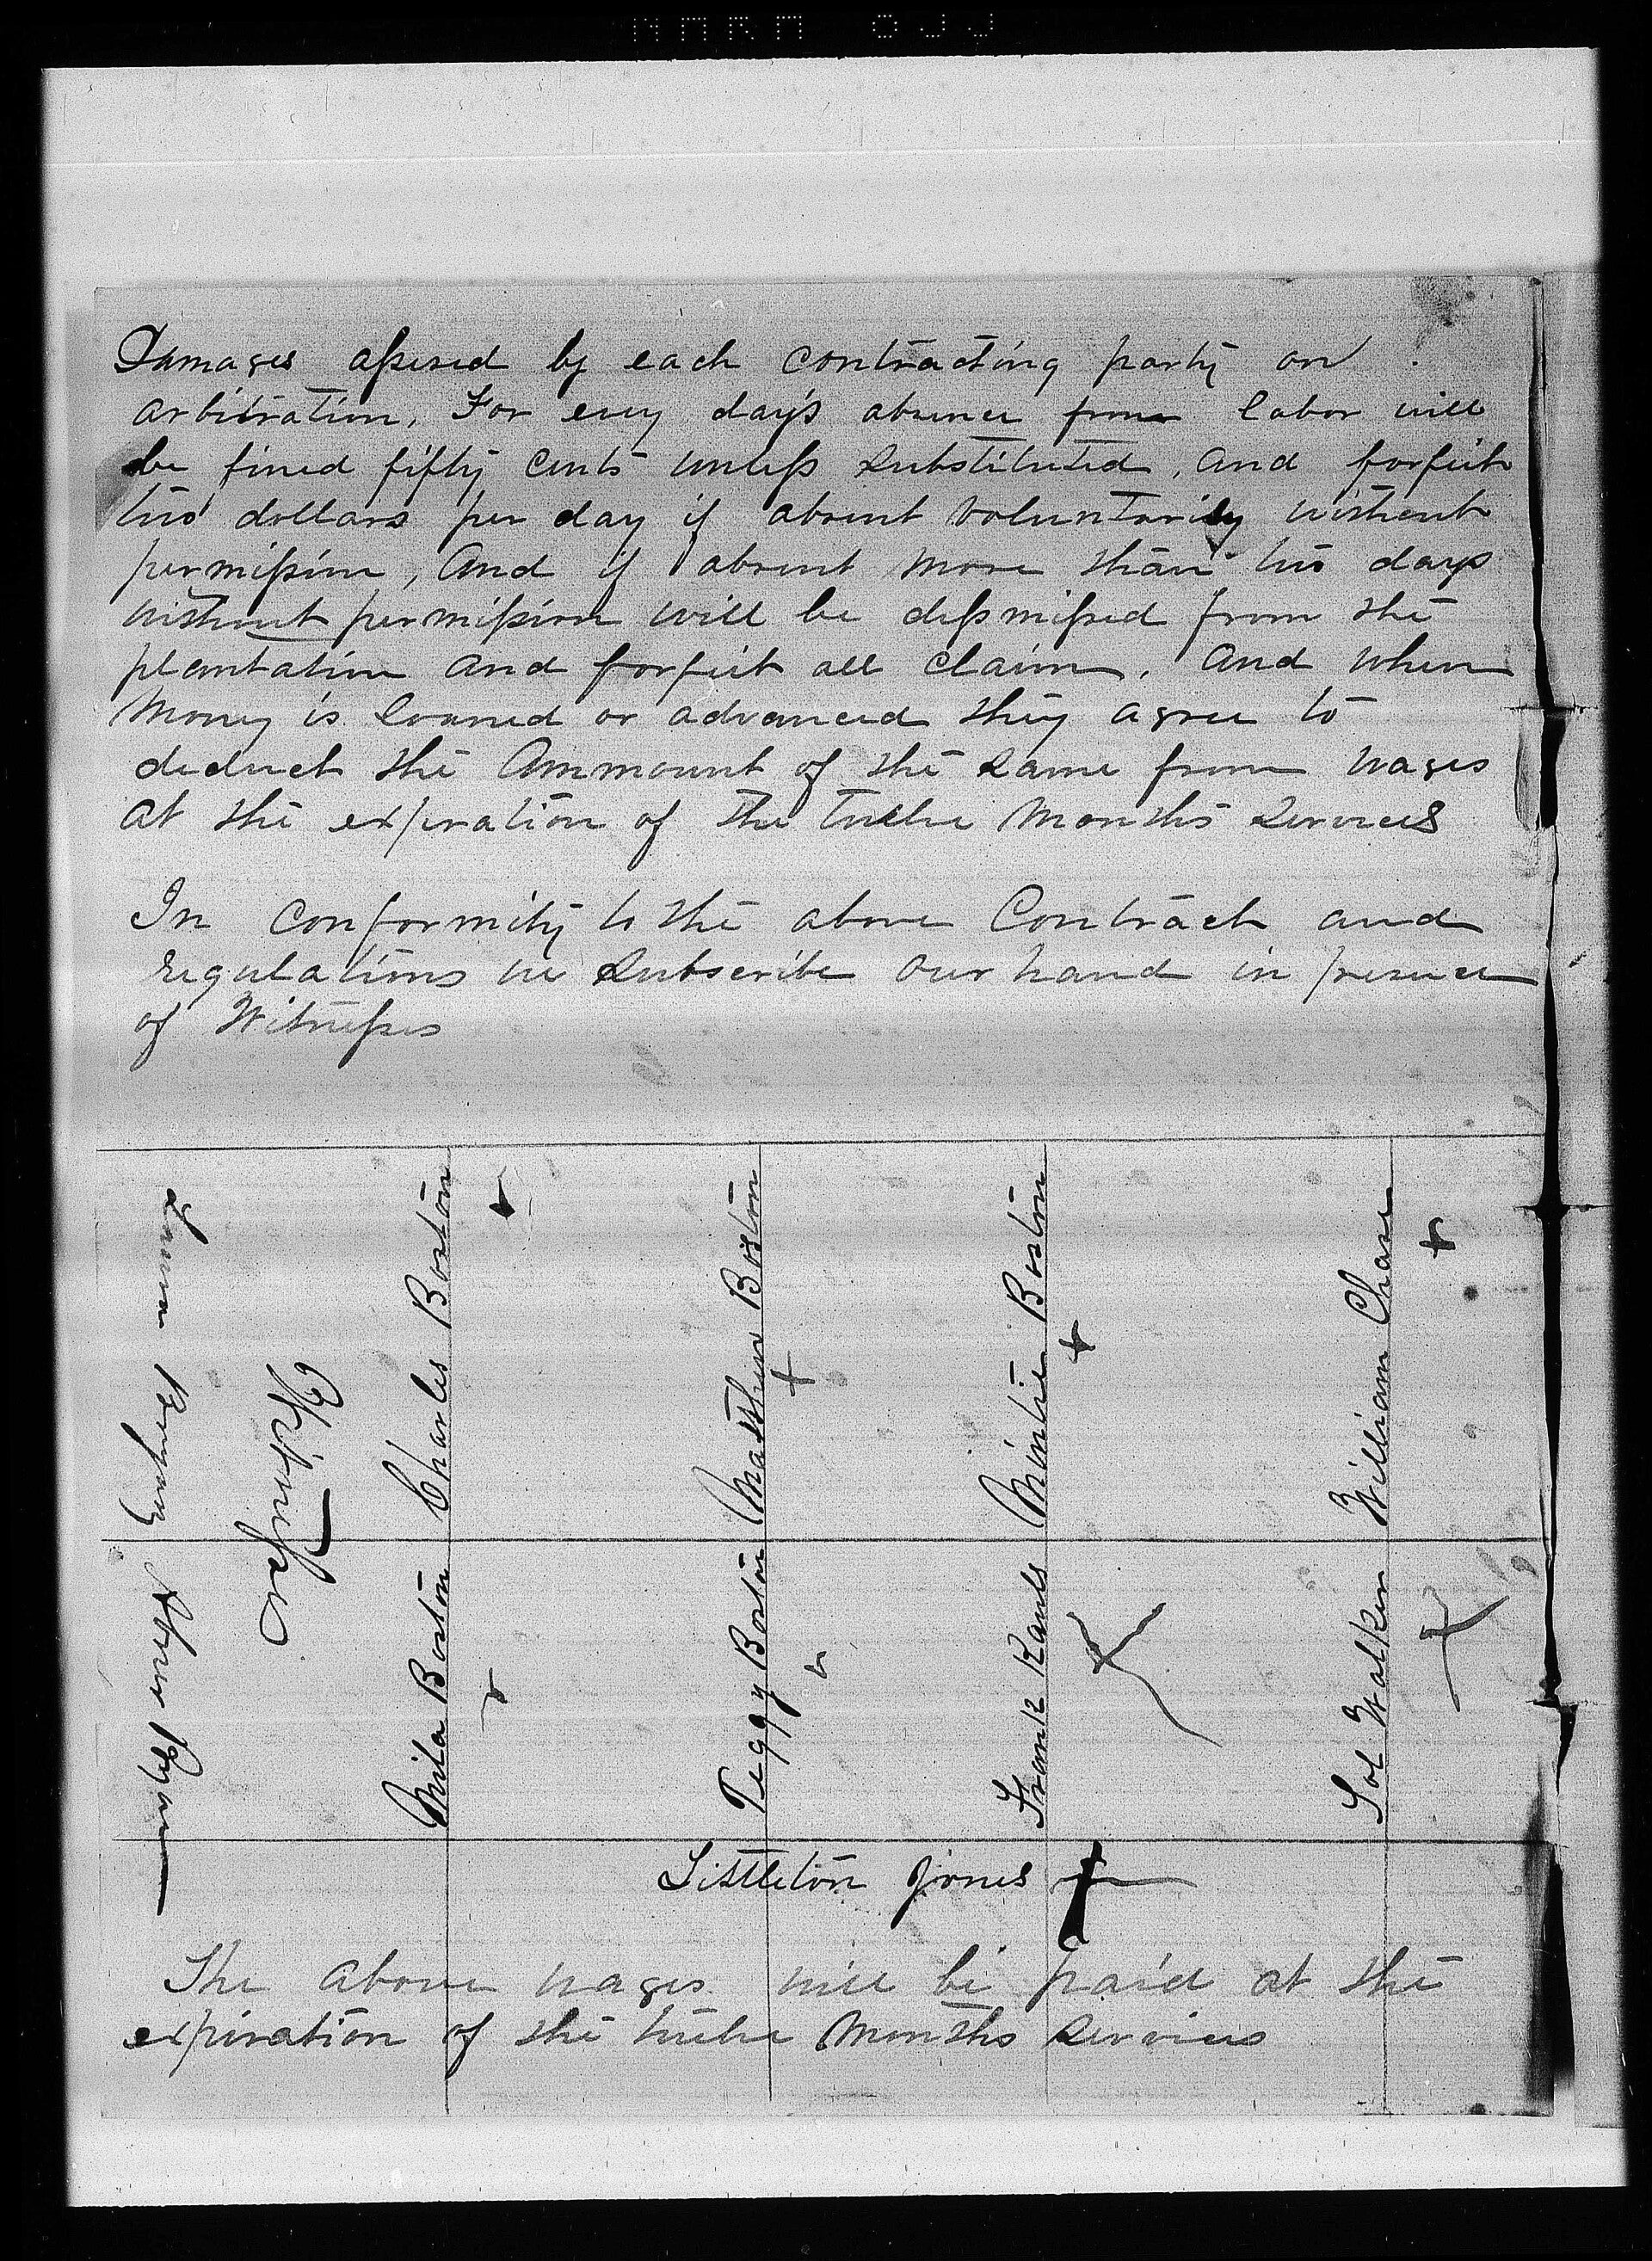 Damages assesed by each contracting party on
arbitration, For evey day's absence from labor will
be fined fifty cents unless substituted, and forfeit
two dollars per day if absent voluntarily without
permission, And if absent more than two days
without permission will be dessmissed from the
plantation and forfeit all claim, And when
money is loaned or advanced they agree to
deduct the Ammount of the same from wages
at the expiration of the twelve months services
In conformity to the above Contract and
regulations we subscribe our hand in presence
of Witnesses
Witness
Charles Boston +
Matthew Boston +
Mintie Boston +
William Chase +
Mila Boston
Peggy Boston
Frank Rawls X
Sol Walker X
Littleton Jones +
The above wages will be paid at the
expiration of the twelve months services